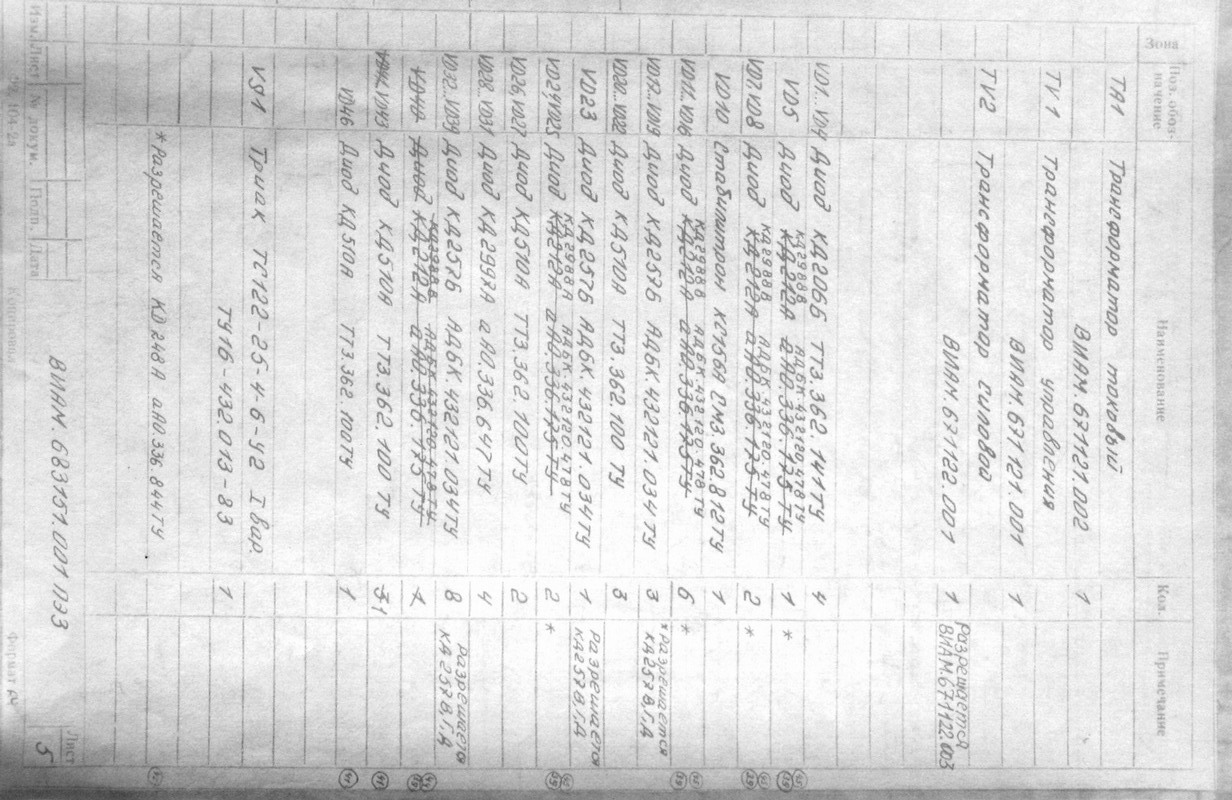 Зона
Поз. обоз-
начение
Наименование
Кол.
Примечание
ТА1 Трансформатор токовый
ВИАМ.671121.002 1
TV1 Трансформатор управления
ВИАМ.671121.001 1
TV2 Трансформатор силовой
ВИАМ.671122.001 1 Разрешается
ВИАМ.671122.003
VD1..VD4 Диод КД206Б ТТ3.362.141ТУ 4
КД2988В АДБК.432120.478ТУ
VD5 Диод КД212А аА0.336.175 ТУ 1 *
КД2988В АДБК.432120.478ТУ
VD7.VD8 Диод КД212А аА0.336.175ТУ 2 *
VD10 Стабилитрон КС156А СМ3.362.812ТУ 1
КД2988В АДБК.432120.478ТУ
VD11..VD16 Диод КД212А аА0.336.175ТУ 6 *
VD17..VD19 Диод КД257Б АДБК.432121.034ТУ 3 *Разрешается
КД257В,Г,Д
VD20..VD22 Диод КД510А ТТ3.362.100 ТУ 3
VD23 Диод КД257Б АДБК.432121.034ТУ 1 Разрешается
КД257В,Г,Д
КД2988А АДБК.432120.478ТУ
VD24,VD25 Диод КД212А аА0.336.175ТУ 2 *
VD26,VD27 Диод КД510А ТТ3.362.100ТУ 2
VD28..VD31 Диод КД2997А аА0.336.647ТУ 4
VD32..VD39 Диод КД257Б АДБК.432121.034ТУ 8 Разрешается
КД257В,Г,Д
КД2988В АДБК.432120.478ТУ
VD40 Диод КД212А аА0.336.175 ТУ 1
VD43 Диод КД510А ТТ3.362.100 ТУ 1
VD46 Диод КД510А ТТ3.362.100ТУ 1
VS1 Триак ТС122-25-4-6-У2 I вар.
ТУ16-432.013-83 1
*Разрешается КД248А аА0336844ТУ
Изм. Лист № докум. Подп. Дата
ВИАМ.683151.001ПЭ3
Лист
5
Копировал
Формат А4